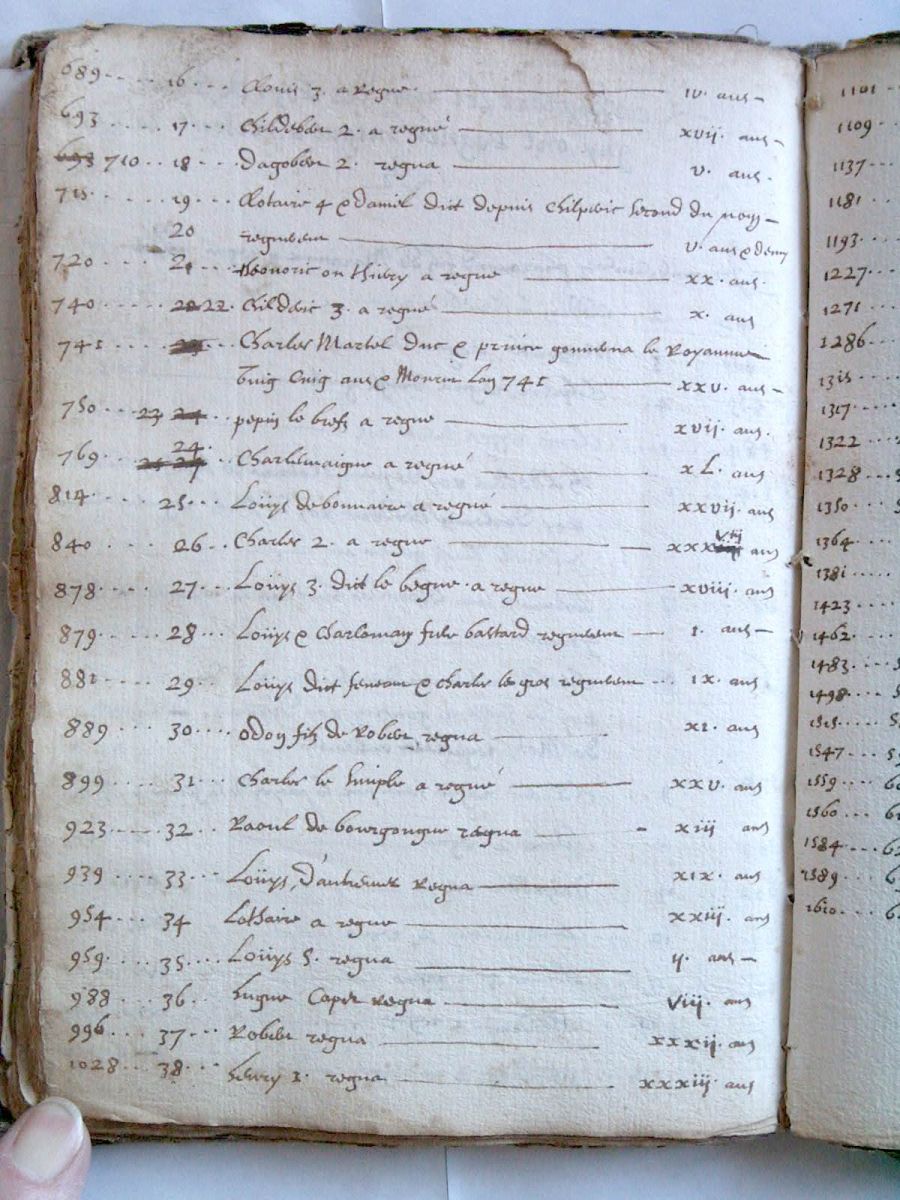 689 .... 16 ... Clouis 3. a Regné. iv. ans
693 .... 17 ... Childeber 2. a regné xvij ans
693 710 .. 18 ... Dagober 2. regna v. ans.
715 .... 19 ... Clotaire 4 & Daniel dict depuis Chilperic second du nom
20 regnerent v. ans & demy
720 .... 21 ... ou thierry a regné xx. ans
740 .... 22. Childeric 3. a regné x. ans
741 .... Charles Martel duc & prince gouuerna le Royaume
Vingt Cinq ans & Mourut Lan 741 xxv. ans
750 ... 23 24 pepin le bref a regné xvij. ans.
769 .. 24 Charlemaigne a regné xL. ans
814 .... 25 ... Loüys debonnaire a regné xxvij. ans
840 .... 26 .. Charles 2. a regné xxxviij ans
878 .... 27 ... Loüys 3. dict le begue a regné xviij ans
879 .... 28 ... Loüys & Charloman bastard regnerent 1. ans
881 .... 29 ... Loüys dict & charles le gros regnerent ix. ans
889 .... 30 .... Odon filz de Robert regna xi. ans
899 .... 31 ... Charles le simple a regné xxv. ans
923 .... 32 .. Raoul de bourgongne regna xiij ans
939 .... 33 ... Loüys, Regna xix. ans
954 .... 34 Lothaire a regné xxxij. ans
959 .... 35 ... Loüys 5. regna ij. ans
988 ... 36 ... hugue Capet Regna viij. ans
996 .... 37 ... Robert regna xxxij. ans
1028 ... 38 ... henry 1. regna xxxiij ans
1101
1109
1137
1181
1193
1227
1271
1286
1315
1317
1322
1328
1350
1364
1381
1423
1462
1483
1498
1515
1547
1559
1560
1584
1589
1610